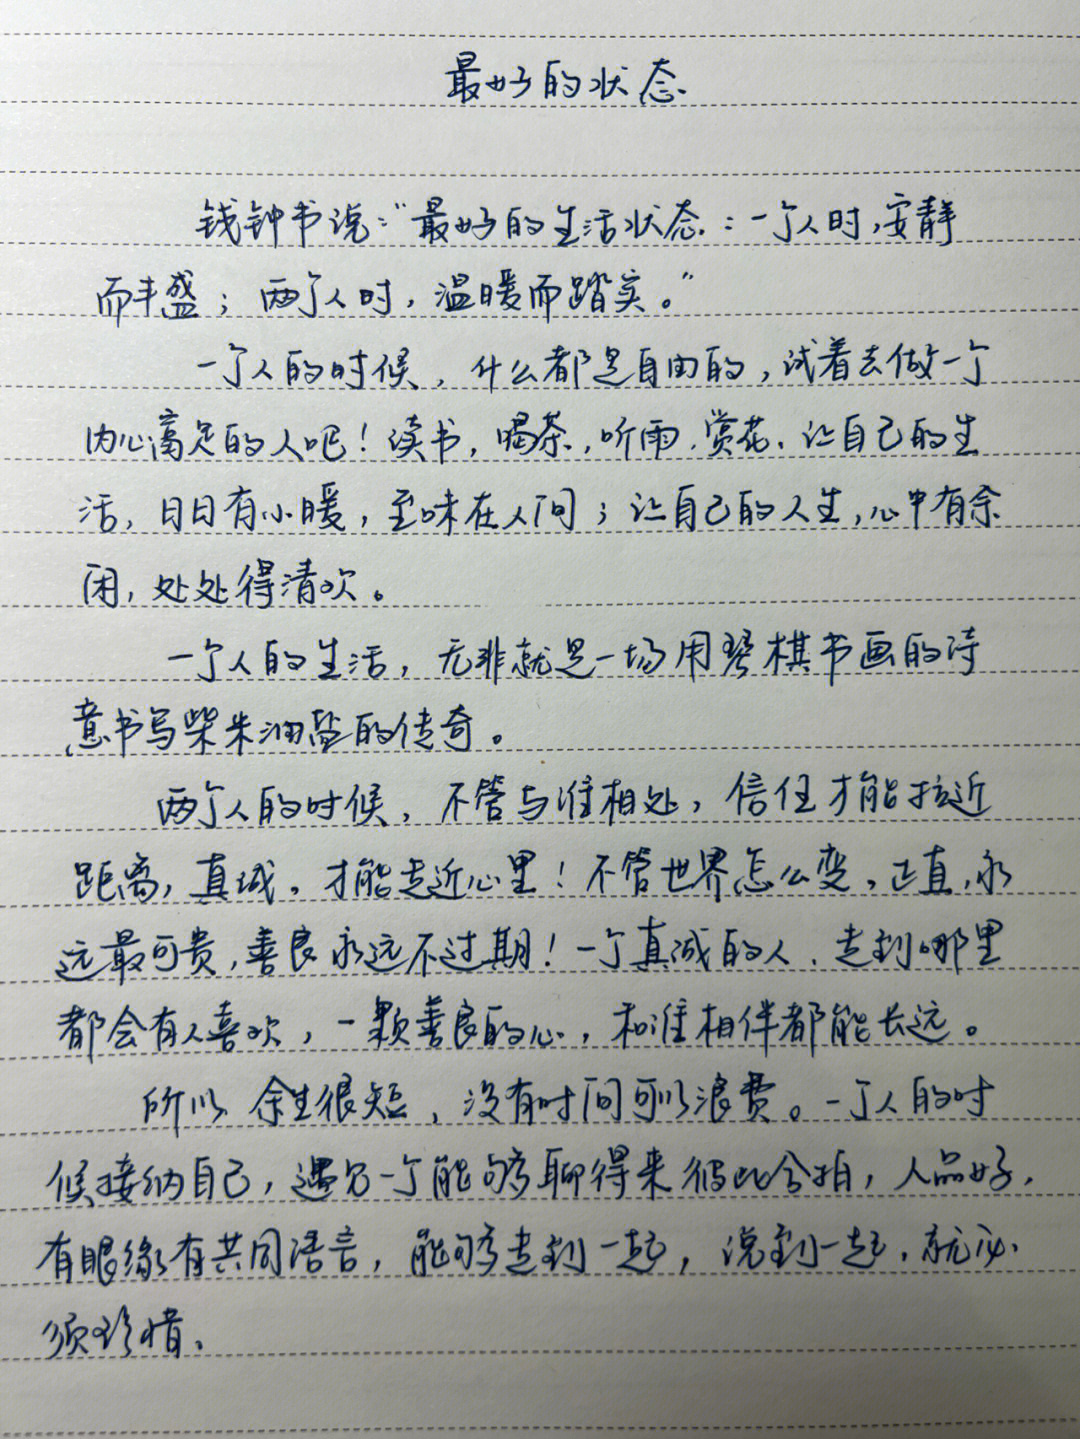 最好的状态
钱钟书说:"最好的生活状态:一个人时,安静
而丰盛;两个人时,温暖而踏实。"
一个人的时候,什么都是自由的,试着去做一个
内心满足的人吧!读书,喝茶,听雨,赏花、让自己的生
活,日日有小暖,至味在人间;让自己的人生,心中有余
闲,处处得清欢。
一个人的生活,无非就是一场用琴棋书画的诗
意书写柴米油盐的传奇。
两个人的时候,不管与谁相处,信任才能拉近
距离,真诚,才能走近心里!不管世界怎么变,正直,永
远最可贵,善良永远不过期!一个真诚的人、走到哪里
都会有人喜欢,一颗善良的心,和谁相伴都能长远。
所以 余生很短,没有时间可以浪费。一个人的时
候接纳自己,遇另一个能够聊得来彼此合拍,人品好,
有眼缘有共同语言,能够走到一起,说到一起,就必
须珍惜。